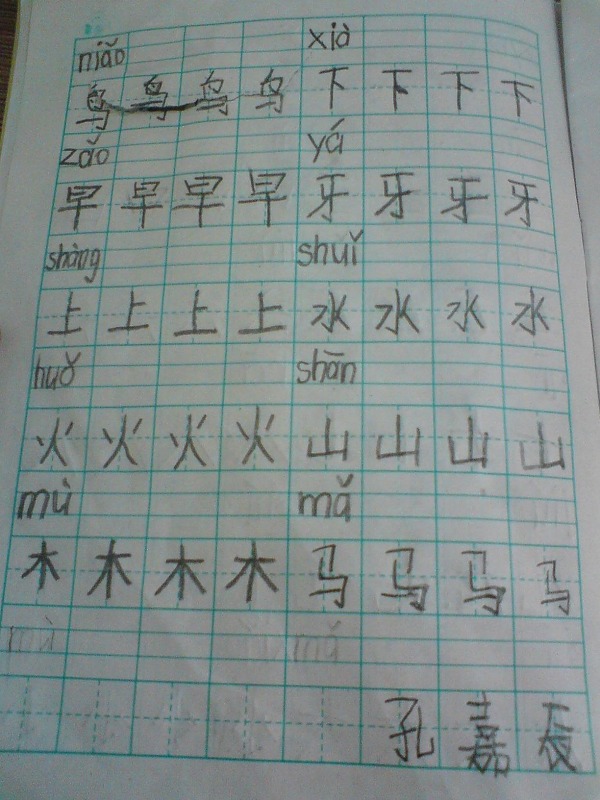 niǎo xià
鸟 鸟 鸟 鸟 下 下 下 下
zǎo yá
早 早 早 早 牙 牙 牙 牙
shàng shuǐ
上 上 上 上 水 水 水 水
huǒ shān
火 火 火 火 山 山 山 山
mù mǎ
木 木 木 木 马 马 马 马
mù mǎ
孔 嘉